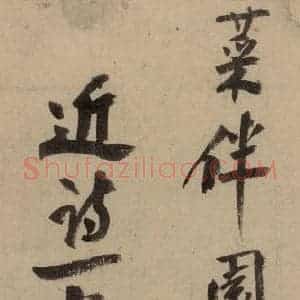 菜伴園
近詩一
ShufaziliaO.COM